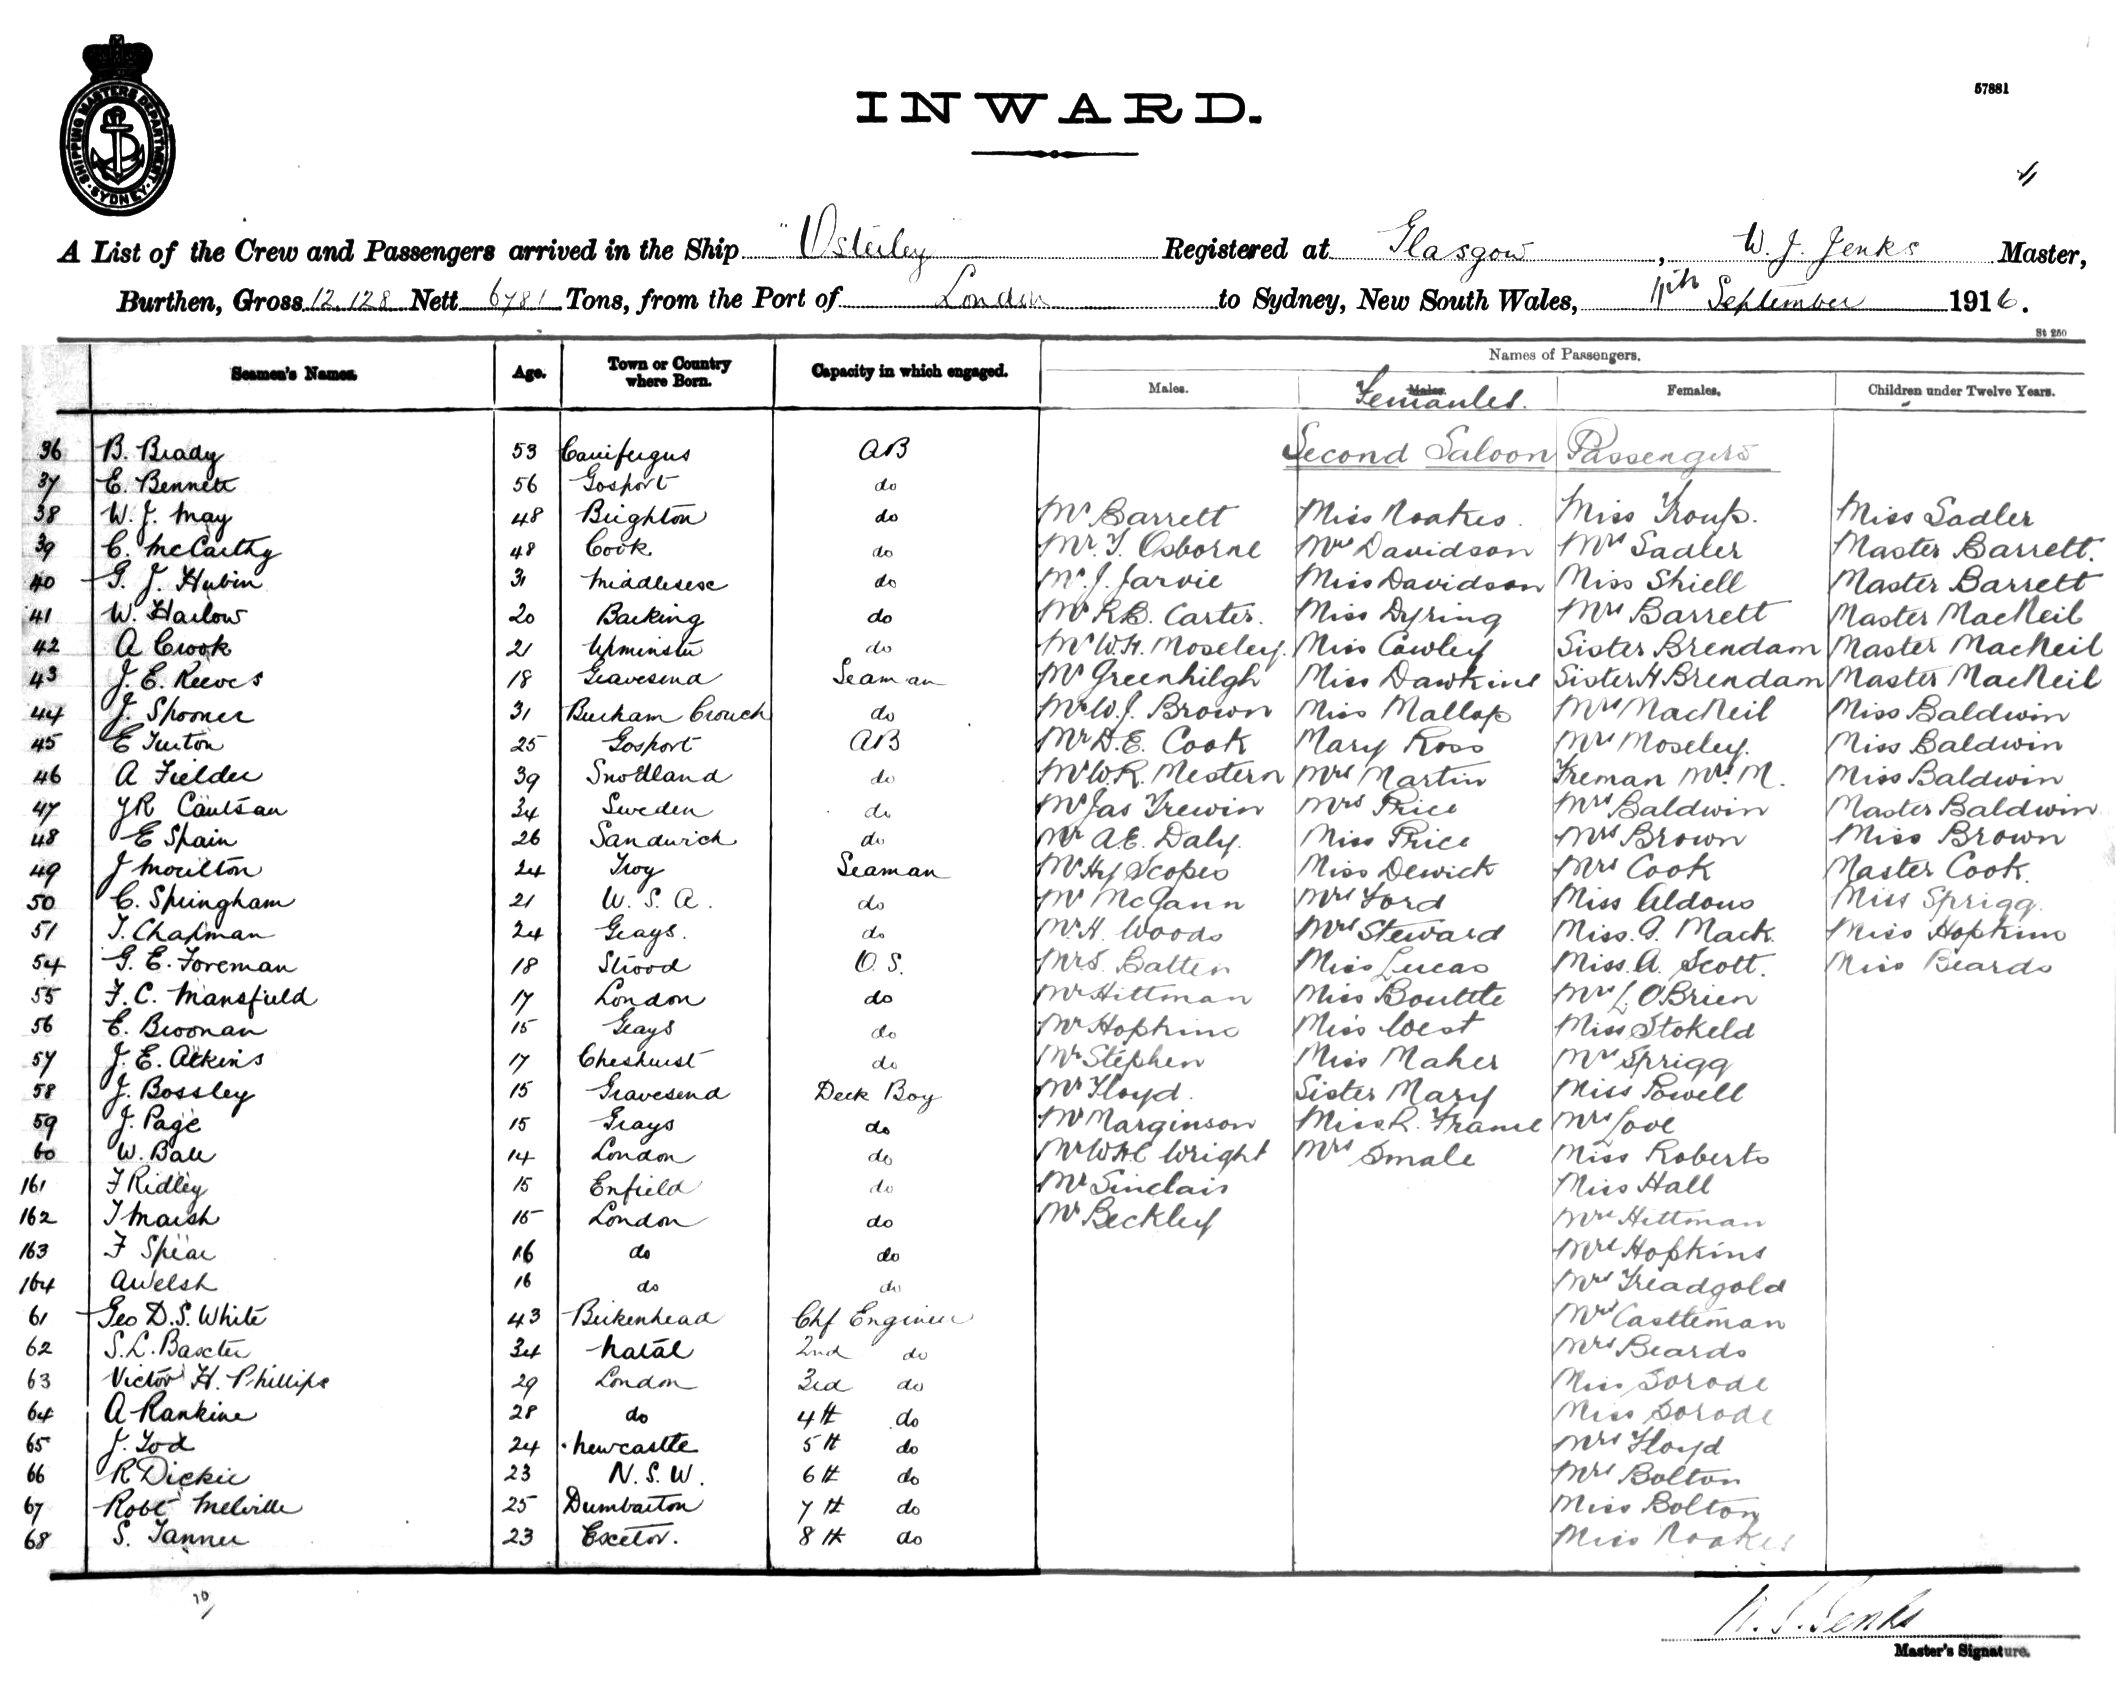 SHIPPING MASTERS DEPARTMENT
SYDNEY
57881
INWARD.
A List of the Crew and Passengers arrived in the Ship "Osterley Registered at Glasgow, W. J. Jenks Master,
Burthen, Gross 12,128 Nett 6781 Tons, from the Port of London to Sydney, New South Wales, 11th September 1916.
St 250
Seamen's Names. Age. Town or Country where Born. Capacity in which engaged. Names of Passengers.
Males. Males. Femanles. Females. Children under Twelve Years.
36 B. Brady 53 Carrifergus AB Second Saloon Passengers
37 E. Bennett 56 Gosport do
38 W. J. May 48 Brighton do Mr Barrett Miss Noakes. Miss Troup. Miss Sadler
39 C. McCarthy 48 Cook do Mr. T. Osborne Mrs Davidson Mrs Sadler Master Barrett.
40 G. J. Hubin 31 Middlesex do Mr. J. Jarvie Miss Davidson Miss Shiell Master Barrett
41 W. Harlow 20 Barking do Mr R.B. Carter. Miss Dyring Mrs Barrett Master MacNeil
42 A Crook 21 Upminster do Mr W.H. Moseley. Miss Cowley Sister Brendam Master MacNeil
43 J. E. Reeves 18 Gravesend Seaman Mr Greenhilgh Miss Dawkins Sister H Brendam Master MacNeil
44 J. Spooner 31 Burham Crouch do Mr W.J. Brown Miss Mallop Mrs MacNeil Miss Baldwin
45 E Turton 25 Gosport AB Mr D.E. Cook Mary Ross Mrs Moseley. Miss Baldwin
46 A Fielder 39 Snodland do Mr W.R. Mestern Mrs Martin Freman Mrs. M. Miss Baldwin
47 34 Sweden do Mr Jas Trewin Mrs Price Mrs Baldwin Master Baldwin
48 E Spain 26 Sandwich do Mr A.E. Daly. Miss Price Mrs Brown Miss Brown
49 J Moulton 24 Troy Seaman Mr Hy Scopes Miss Dewick Mrs Cook Master Cook.
50 C. Springham 21 U. S. A. do Mr McGann Mrs Ford Miss Aldous Miss Sprigg.
51 T. Chapman 24 Grays. do Mr. H. Woods Mrs Steward Miss. A. Mack. Miss Hopkins
54 G. E. Foreman 18 Strood O. S. Mr S. Batten Miss Lucas Miss. A. Scott. Miss Beards
55 F. C. Mansfield 17 London do Mr Hittman Miss Bouttle Mrs L. O'Brien
56 E. Broonan 15 Grays do Mr Hopkins Miss West Miss Stokeld
57 J. E. Atkins 17 Cheshurst do Mr Stephen Miss Maher Mrs Sprigg
58 J. Bossley 15 Gravesend Deck Boy Mr Floyd. Sister Mary Miss Powell
59 J. Page 15 Grays do Mr Marginson Miss R. Frame Mrs Love
60 W. Ball 14 London do Mr W.H.C Wright Mrs Smale Miss Roberts
161 F Ridley 15 Enfield do Mr Sinclair Miss Hall
162 T Marsh 15 London do Mr Beckley Mrs Hittman
163 F Spear 16 do do Mrs Hopkins
164 A Welsh 16 do do Mrs Treadgold
61 Geo D. S. White 43 Birkenhead Chf Engineer Mrs Castteman
62 S. L. Baxter 34 Natal 2nd do Mrs Beards
63 Victor H. Phillips 29 London 3rd do Miss Sorode
64 A Rankine 28 do 4th do Miss Sorode
65 J. Tod 24 Newcastle 5th do Mrs Floyd
66 R Dickie 23 N. S. W. 6th do Mrs Bolton
67 Robt Melville 25 Dumbarton 7th do Miss Bolton
68 S. Tanner 23 Exetor. 8th do Miss Noakes
70/
W. J. Jenks
Master's Signature.